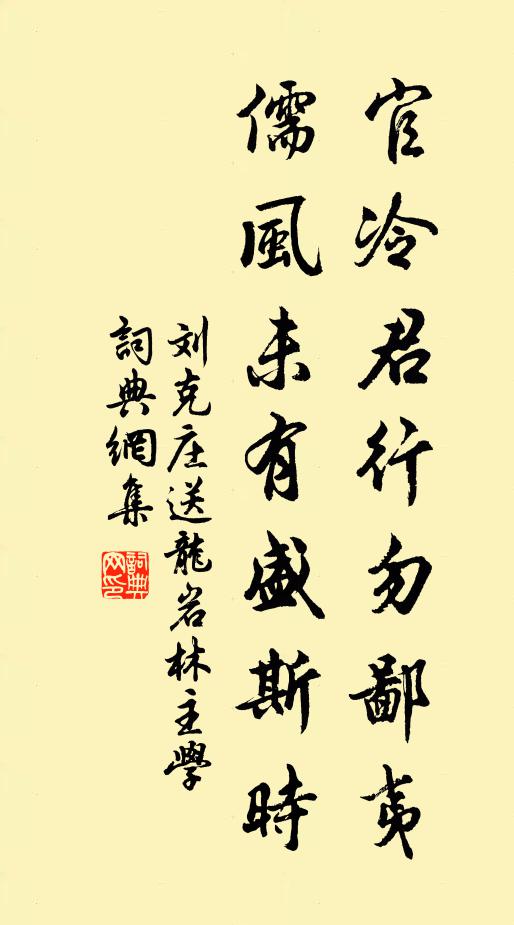 官冷君行勿鄙夷
儒風未有盛斯時
刘克庄送龍岩林主學
詞典網集
詞典网印